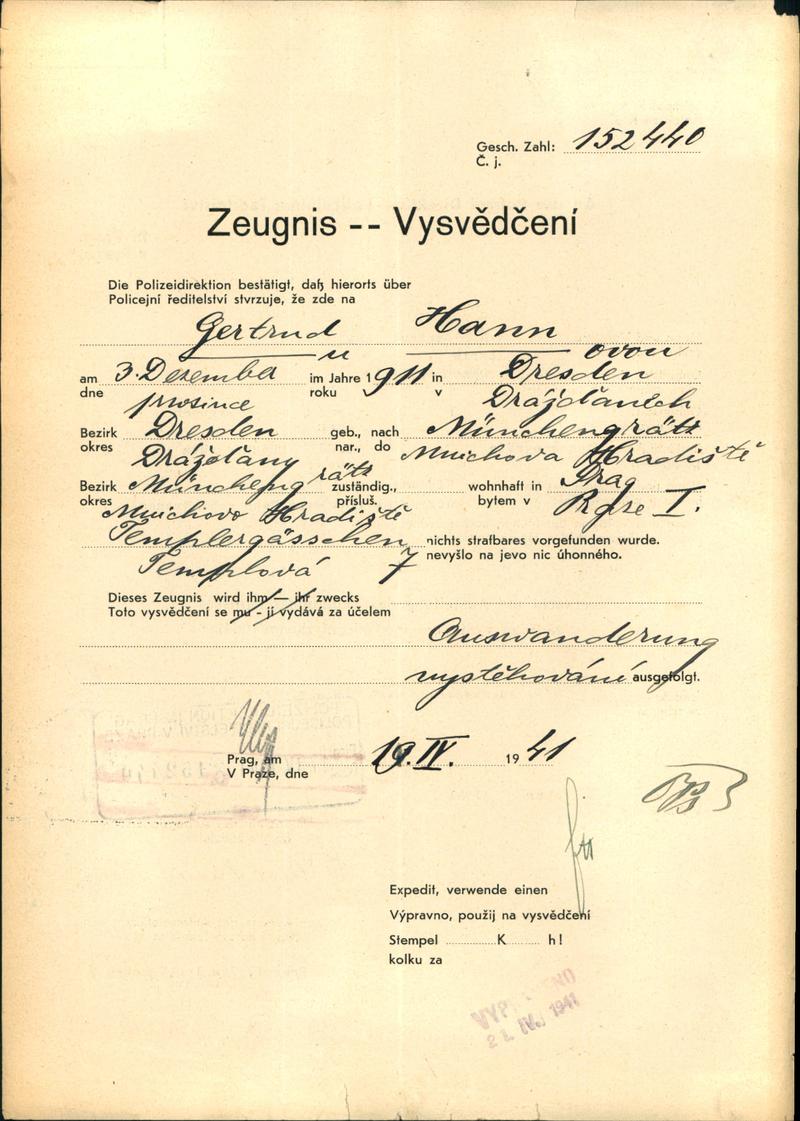 Gesch. Zahl: 152440
Č. j.
Zeugnis -- Vysvědčení
Die Polizeidirektion bestätigt, daß hierorts über
Policejní ředitelství stvrzuje, že zde na
Gertrud Hann
u ovou
am 3. Dezember im Jahre 1911 in Dresden
dne prosince roku v Drážďanech
Bezirk Dresden geb., nach Münchengrätz
okres Drážďany nar., do Mnichova Hradiště
Bezirk Münchengrätz zuständig., wohnhaft in Prag
okres Mnichovo Hradiště přísluš. bytem v I.
Templergässchen nichts strafbares vorgefunden wurde.
Templová 7 nevyšlo na jevo nic úhonného.
Dieses Zeugnis wird ihm — ihr zwecks
Toto vysvědčení se mu - jí vydává za účelem
Auswanderung
vystěhování ausgefolgt.
Prag, am 19. IV. 1941
V Praze, dne
Expedit, verwende einen
Výpravno, použij na vysvědčení
Stempel K h!
kolku za
IV. 1941